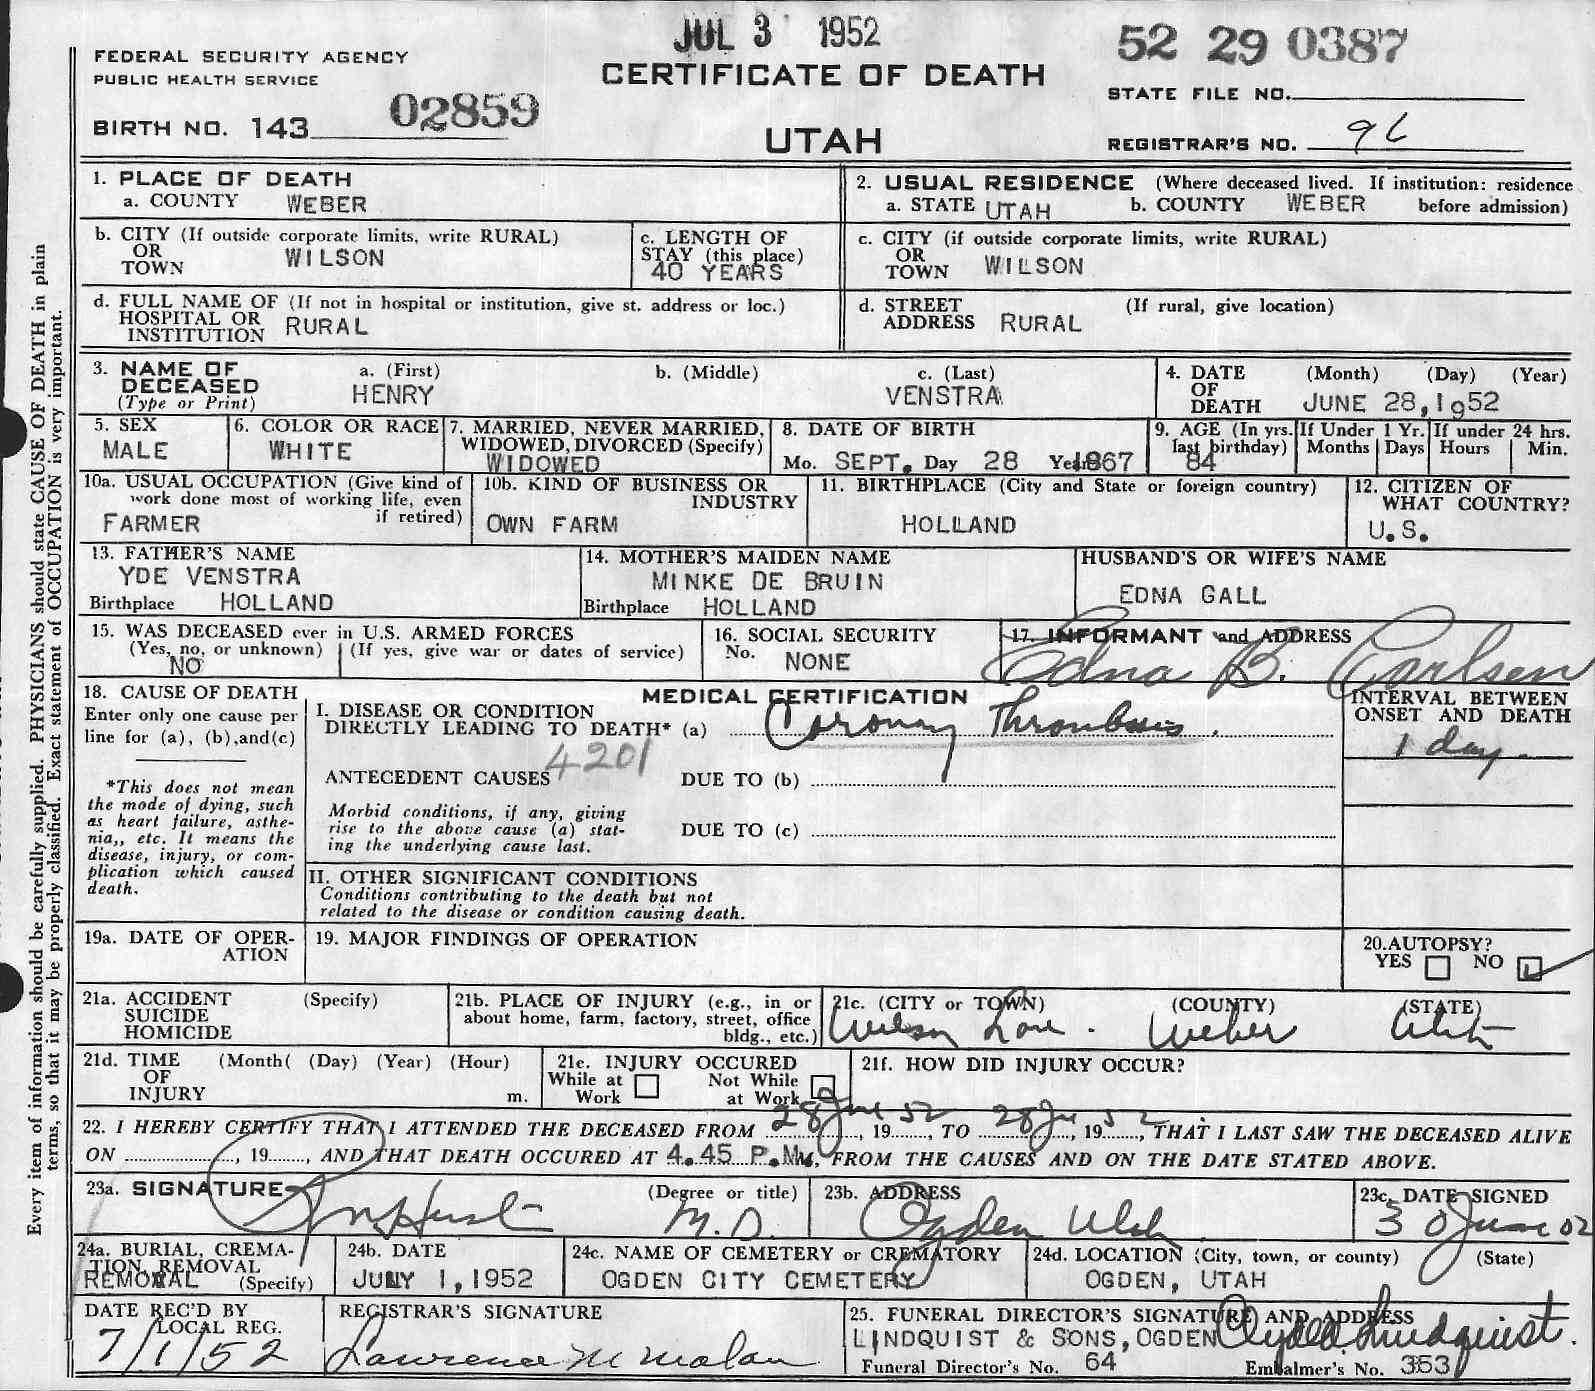 JUL 3 1952
52 29 0387
FEDERAL SECURITY AGENCY
PUBLIC HEALTH SERVICE
CERTIFICATE OF DEATH
STATE FILE NO.
BIRTH NO. 143 02859
UTAH
REGISTRAR'S NO. 96
Every item of information should be carefully supplied. PHYSICIANS should state CAUSE OF DEATH in plain
terms, so that it may be properly classified. Exact statement of OCCUPATION is very important.
1. PLACE OF DEATH
a. COUNTY WEBER
2. USUAL RESIDENCE (Where deceased lived. If institution: residence
a. STATE UTAH b. COUNTY WEBER before admission)
b. CITY (If outside corporate limits, write RURAL)
OR
TOWN WILSON
c. LENGTH OF
STAY (this place)
40 YEARS
c. CITY (if outside corporate limits, write RURAL)
OR
TOWN WILSON
d. FULL NAME OF (If not in hospital or institution, give st. address or loc.)
HOSPITAL OR
INSTITUTION RURAL
d. STREET (If rural, give location)
ADDRESS RURAL
3. NAME OF
DECEASED
(Type or Print)
a. (First) b. (Middle) c. (Last)
HENRY VENSTRA
4. DATE (Month) (Day) (Year)
OF
DEATH JUNE 28, 1952
5. SEX
MALE
6. COLOR OR RACE
WHITE
7. MARRIED, NEVER MARRIED,
WIDOWED, DIVORCED (Specify)
WIDOWED
8. DATE OF BIRTH
Mo. SEPT. Day 28 Year 1867
9. AGE (In yrs.
last birthday)
84
If Under 1 Yr.
Months Days
If under 24 hrs.
Hours Min.
10a. USUAL OCCUPATION (Give kind of
work done most of working life, even
if retired)
FARMER
10b. KIND OF BUSINESS OR
INDUSTRY
OWN FARM
11. BIRTHPLACE (City and State or foreign country)
HOLLAND
12. CITIZEN OF
WHAT COUNTRY?
U.S.
13. FATHER'S NAME
YDE VENSTRA
Birthplace HOLLAND
14. MOTHER'S MAIDEN NAME
MINKE DE BRUIN
Birthplace HOLLAND
HUSBAND'S OR WIFE'S NAME
EDNA GALL
15. WAS DECEASED ever in U.S. ARMED FORCES
(Yes, no, or unknown) (If yes, give war or dates of service)
NO
16. SOCIAL SECURITY
No. NONE
17. INFORMANT and ADDRESS
Edna B. Carlsen
18. CAUSE OF DEATH
Enter only one cause per
line for (a), (b),and(c)
*This does not mean
the mode of dying, such
as heart failure, asthe-
nia,, etc. It means the
disease, injury, or com-
plication which caused
death.
MEDICAL CERTIFICATION
I. DISEASE OR CONDITION
DIRECTLY LEADING TO DEATH* (a) Coronary Thrombosis
4201
ANTECEDENT CAUSES DUE TO (b)
Morbid conditions, if any, giving
rise to the above cause (a) stat-
ing the underlying cause last.
DUE TO (c)
INTERVAL BETWEEN
ONSET AND DEATH
1 day
II. OTHER SIGNIFICANT CONDITIONS
Conditions contributing to the death but not
related to the disease or condition causing death.
19a. DATE OF OPER-
ATION
19. MAJOR FINDINGS OF OPERATION
20.AUTOPSY?
YES NO
21a. ACCIDENT (Specify)
SUICIDE
HOMICIDE
21b. PLACE OF INJURY (e.g., in or
about home, farm, factory, street, office
bldg., etc.)
21c. (CITY or TOWN) (COUNTY) (STATE)
Wilson Lane. Weber Utah
21d. TIME (Month( (Day) (Year) (Hour)
OF
INJURY m.
21e. INJURY OCCURED
While at Not While
Work at Work
21f. HOW DID INJURY OCCUR?
22. I HEREBY CERTIFY THAT I ATTENDED THE DECEASED FROM 28 June, 19 52, TO 28 Ju, 19 52, THAT I LAST SAW THE DECEASED ALIVE
ON , 19 , AND THAT DEATH OCCURED AT 4.45 P.M., FROM THE CAUSES AND ON THE DATE STATED ABOVE.
23a. SIGNATURE (Degree or title)
M.D.
23b. ADDRESS
Ogden Utah
23c. DATE SIGNED
30 June 52
24a. BURIAL, CREMA-
TION, REMOVAL
REMOVAL (Specify)
24b. DATE
JULY 1, 1952
24c. NAME OF CEMETERY or CREMATORY
OGDEN CITY CEMETERY
24d. LOCATION (City, town, or county) (State)
OGDEN, UTAH
DATE REC'D BY
LOCAL REG.
7/1/52
REGISTRAR'S SIGNATURE
Lawrence M Malan
25. FUNERAL DIRECTOR'S SIGNATURE AND ADDRESS
LINDQUIST & SONS, OGDEN Clyde Lindquist.
Funeral Director's No. 64 Embalmer's No. 353